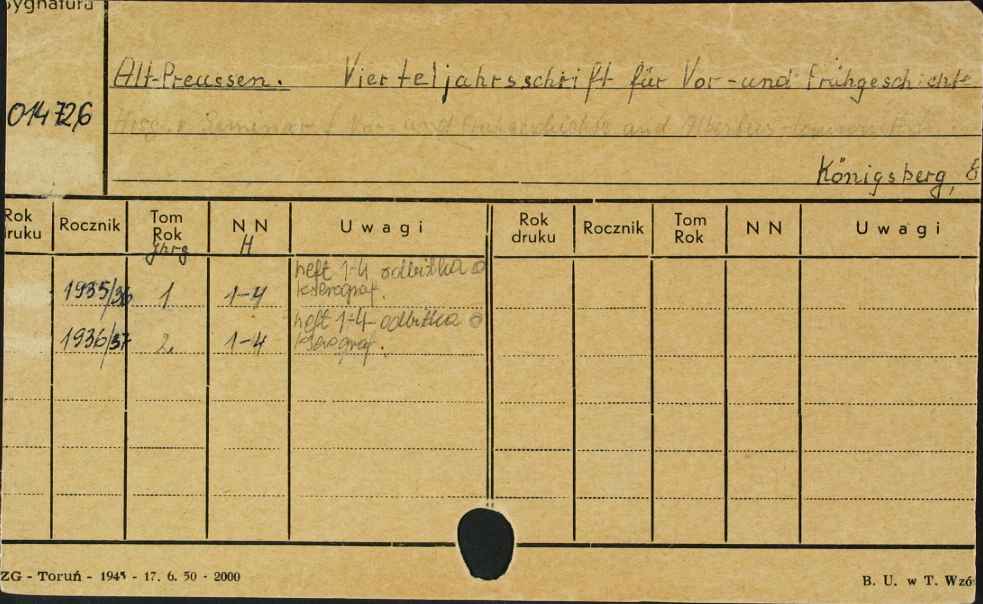 Sygnatura
Alt-Preussen. Vierteljahrsschrift für Vor- und Frühgeschichte
014726
Seminar f. Vor- und Frühgeschichte
Königsberg,
Rok druku Rocznik Tom Rok Jhrg NN H Uwagi Rok druku Rocznik Tom Rok NN Uwagi
heft 1-4 odbitka
1935/36 1 1-4 kserograf.
heft 1-4 odbitka
1936/37 2. 1-4 kserograf.
ZG - Toruń - 1945 - 17. 6. 50 - 2000
B. U. w T. Wzó